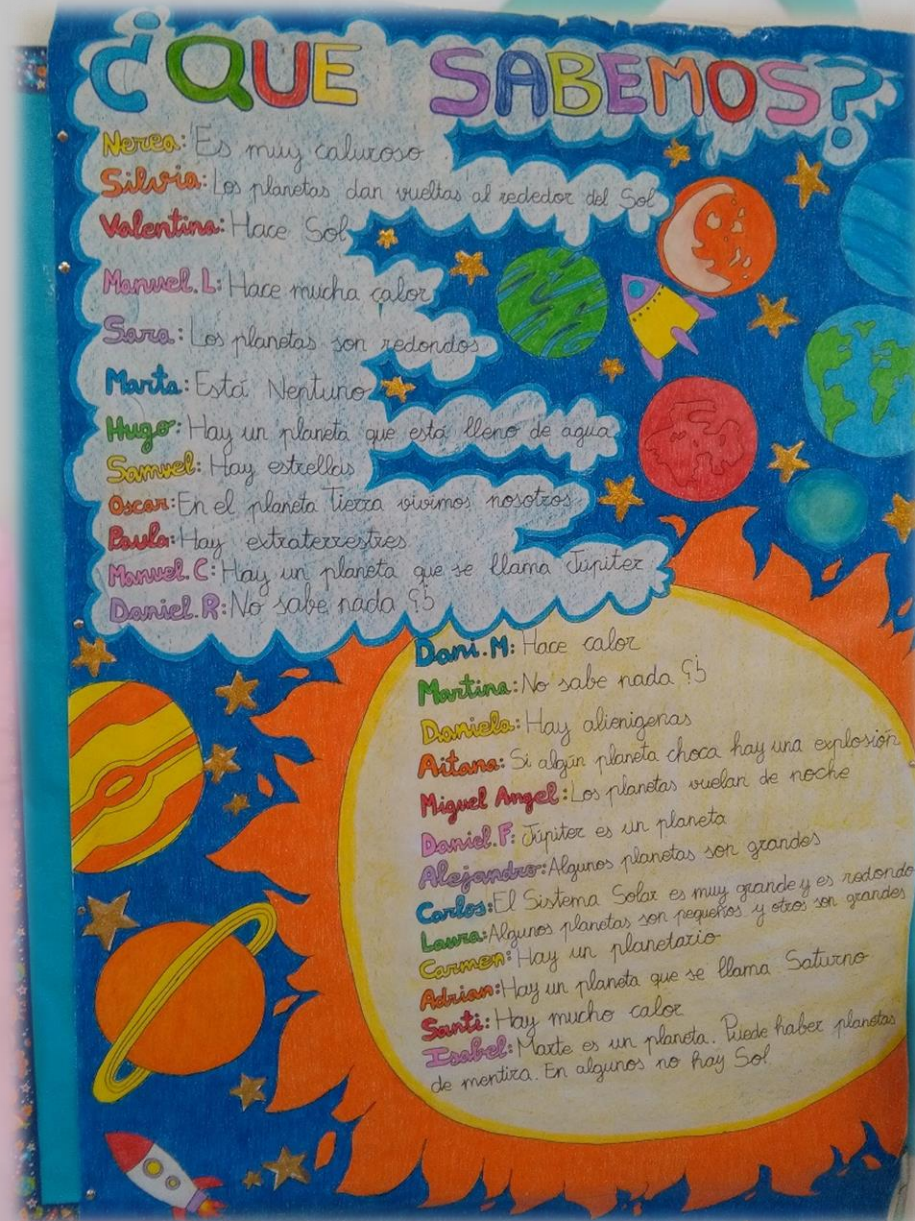 ¿QUE SABEMOS?
Nerea: Es muy caluroso
Silvia: Los planetas dan vueltas al rededor del Sol
Valentina: Hace Sol
Manuel.L: Hace mucha calor
Sara: Los planetas son redondos
Marta: Está Neptuno
Hugo: Hay un planeta que está lleno de agua
Samuel: Hay estrellas
Oscar: En el planeta Tierra vivimos nosotros
Paula: Hay extraterrestres
Manuel.C: Hay un planeta que se llama Júpiter
Daniel.R: No sabe nada
Dani.M: Hace calor
Martina: No sabe nada
Daniela: Hay alienigenas
Aitana: Si algún planeta choca hay una explosión
Miguel Angel: Los planetas vuelan de noche
Daniel.F: Júpiter es un planeta
Alejandro: Algunos planetas son grandes
Carlos: El Sistema Solar es muy grande y es redondo
Laura: Algunos planetas son pequeños y otros son grandes
Carmen: Hay un planetario
Adrian: Hay un planeta que se llama Saturno
Santi: Hay mucho calor
Isabel: Marte es un planeta. Puede haber planetas
de mentira. En algunos no hay Sol